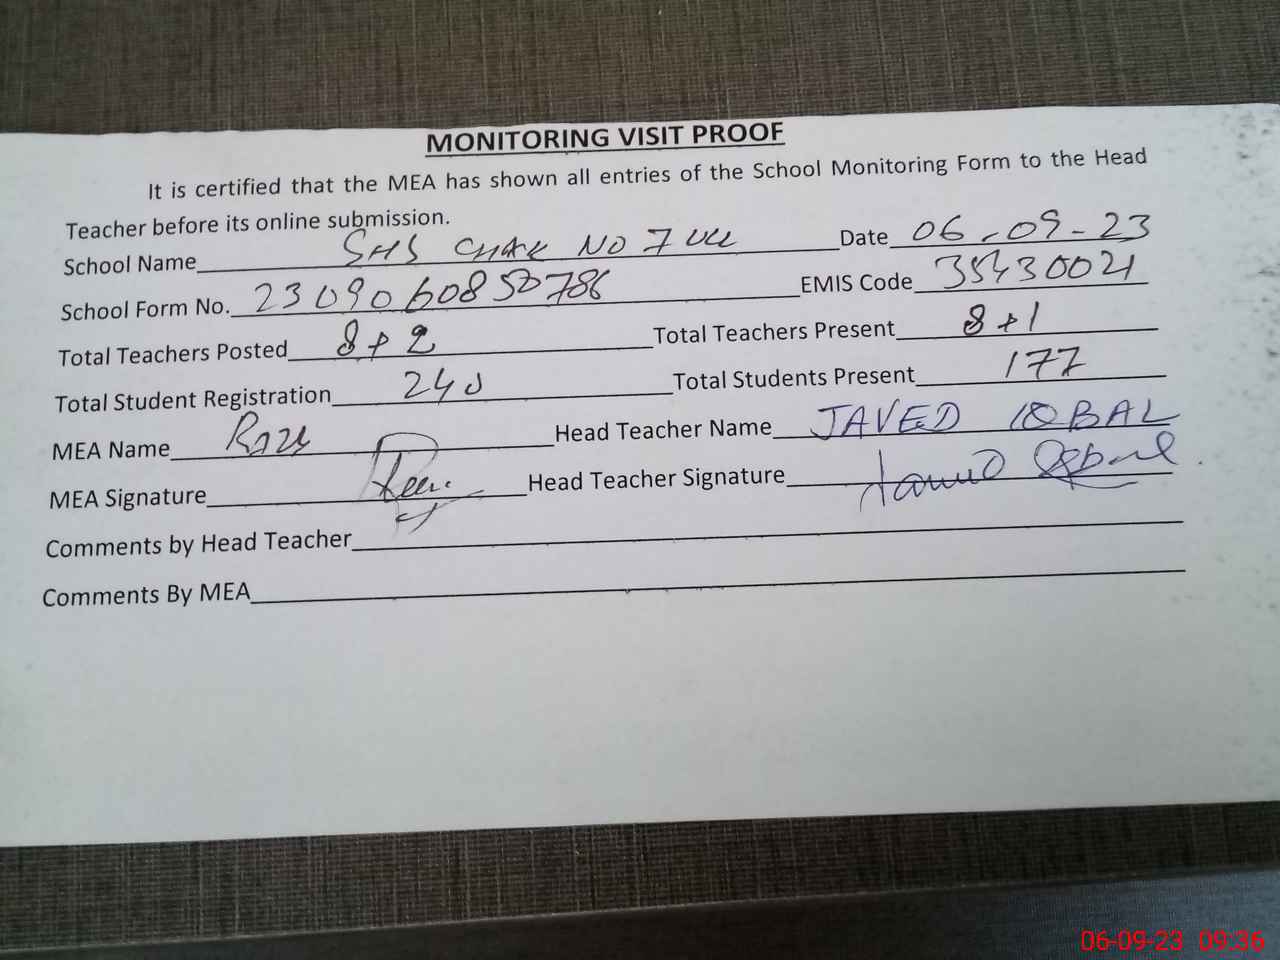 MONITORING VISIT PROOF
It is certified that the MEA has shown all entries of the School Monitoring Form to the Head
Teacher before its online submission.
School Name SHS CHAK NO 7 Date 06-09-23
School Form No. 2309060850786 EMIS Code 35430021
Total Teachers Posted 8+2 Total Teachers Present 8+1
Total Student Registration 240 Total Students Present 177
MEA Name Head Teacher Name JAVED IQBAL
MEA Signature Head Teacher Signature
Comments by Head Teacher
Comments By MEA
06-09-23 09:36